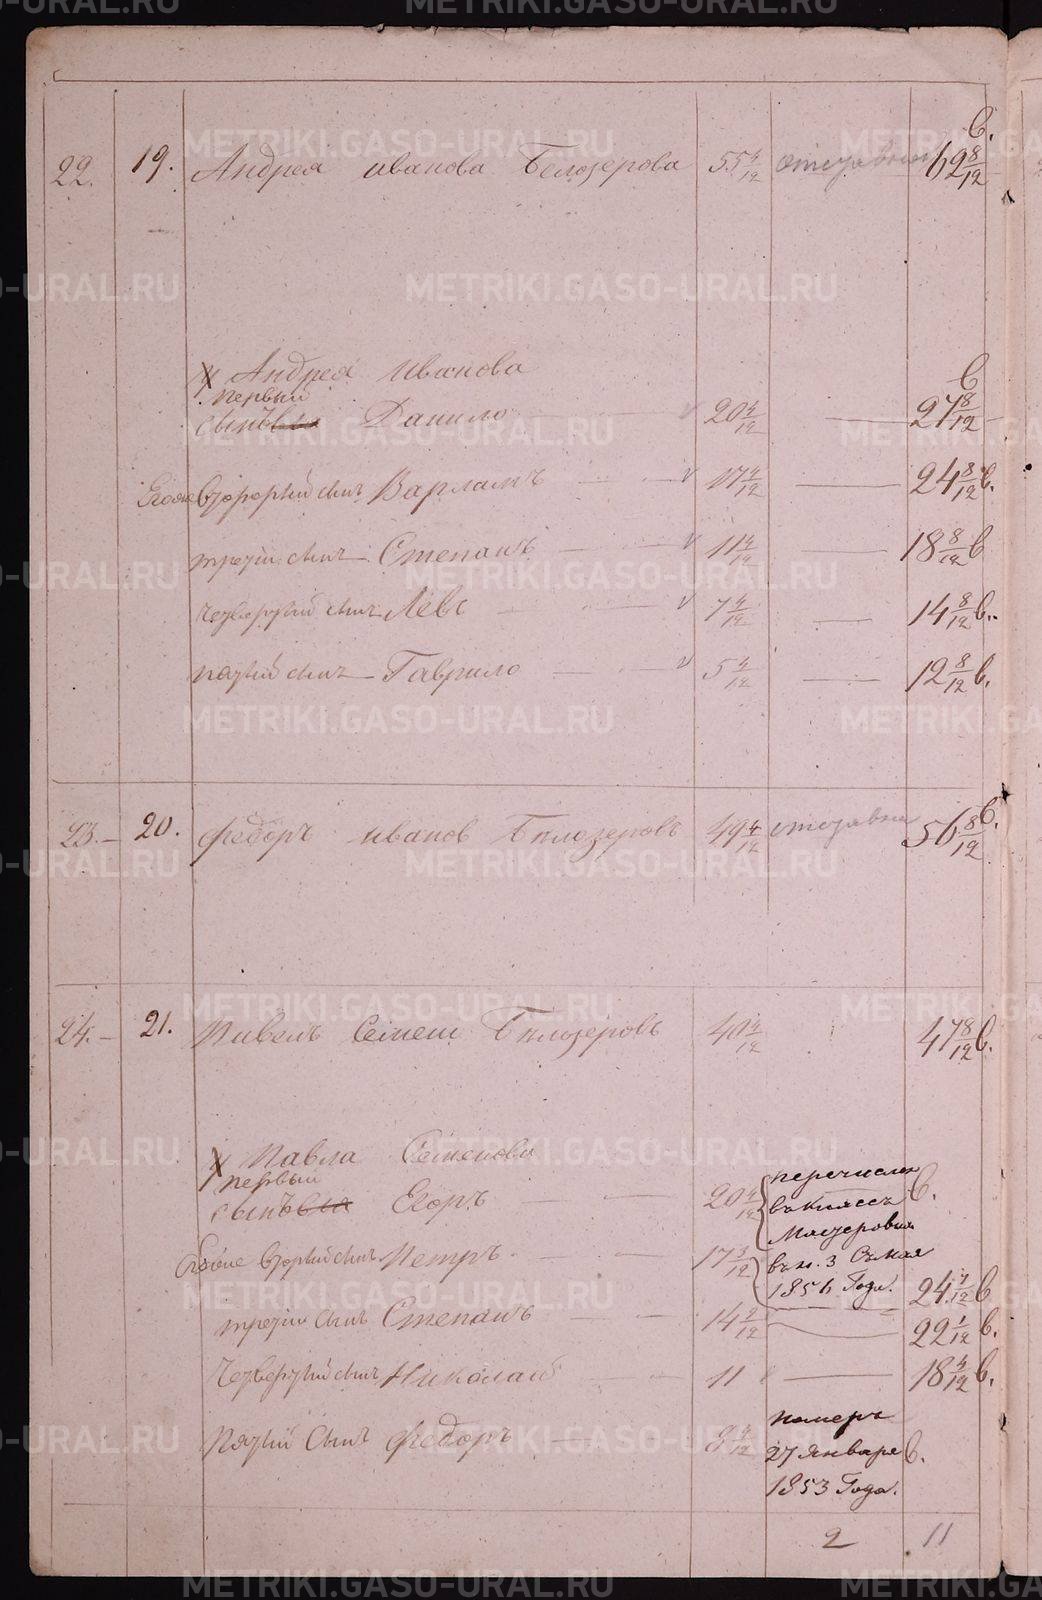 22. 19. Андрея Иванова Белозерова 55 4/12 отставный 62 8/12 в.
Андрея Иванова
первый
сынъ Данило 20 4/12 — 27 8/12 в
Егоже вторый сынъ Варламъ 17 4/12 — 24 8/12 в.
третiй сынъ Степанъ 11 4/12 — 18 8/12 в
четвертый сынъ Левъ 7 4/12 — 14 8/12 в.
пятый сынъ Гаврило 5 4/12 — 12 8/12 в.
23. 20. Федоръ Иванов Бѣлозеровъ 49 4/12 отставны 56 8/12 в.
24. 21. Павелъ Семен Бѣлозеровъ 40 4/12 47 8/12 в.
Павла Семенова
первый
сынъ Егоръ 20 4/12 перечислен в.
въ классъ
Мастеровыхъ
Егоже вторый сынъ Петръ 17 3/12 въ н. 3 Съ мая
1856 Года. 24 7/12 в
третiй сынъ Степанъ 14 9/12 — 22 1/12 в.
четвертый сынъ Николай 11 — 18 4/12 в.
пятый сынъ Федоръ 8 4/12 померъ
27 Января в.
1853 Года.
2 11
METRIKI.GASO-URAL.RU